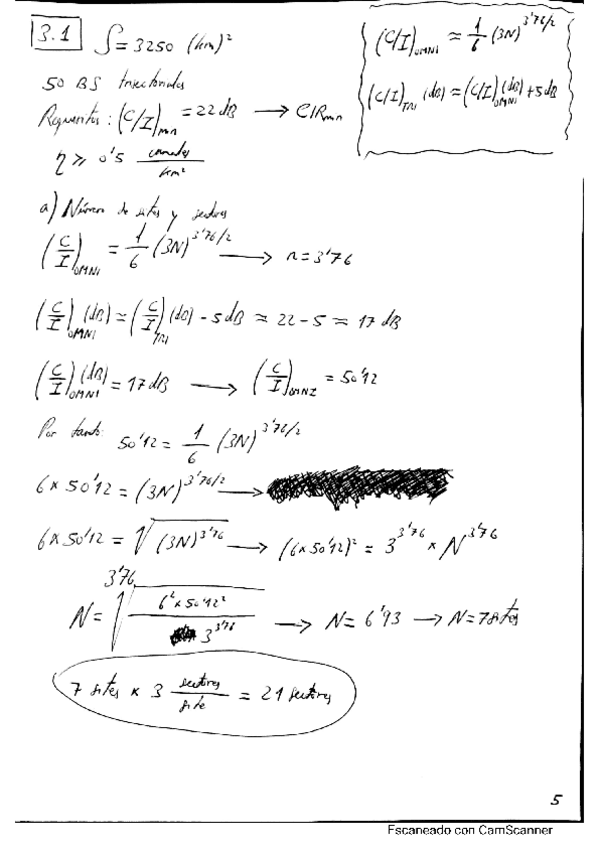 3.1 S = 3250 (km)²
50 BS trisectoriales
Requisitos: (C/I)min = 22 dB → CIRmin
η ≥ 0'5 canales/km²
(C/I)OMNI ≈ 1/6 (3N)^3'76/2
(C/I)TRI (dB) ≈ (C/I)OMNI (dB) + 5 dB
a) Número de sites y sectores
(C/I)OMNI = 1/6 (3N)^3'76/2 → n = 3'76
(C/I)OMNI (dB) ≈ (C/I)TRI (dB) - 5 dB ≈ 22 - 5 ≈ 17 dB
(C/I)OMNI (dB) = 17 dB → (C/I)OMNI = 50'12
Por tanto: 50'12 = 1/6 (3N)^3'76/2
6 × 50'12 = (3N)^3'76/2 →
6 × 50'12 = √(3N)^3'76 → (6 × 50'12)² = 3^3'76 × N^3'76
N = 3'76√(6² × 50'12² / 3^3'76) → N = 6'93 → N = 7 sites
7 sites × 3 sectores/site = 21 sectores
5
Escaneado con CamScanner